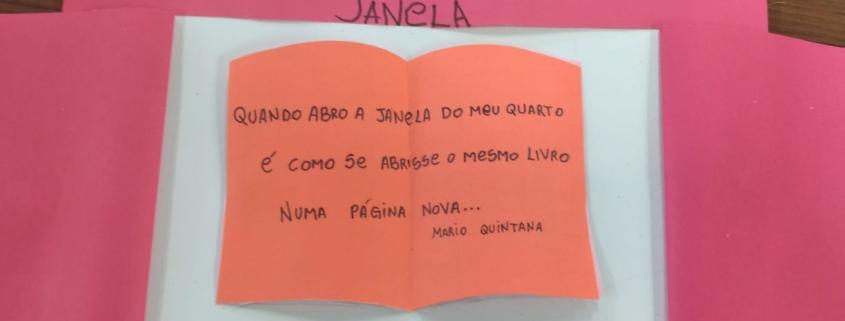 JANELA
QUANDO ABRO A JANELA DO MEU QUARTO
É COMO SE ABRISSE O MESMO LIVRO
NUMA PÁGINA NOVA...
MARIO QUINTANA